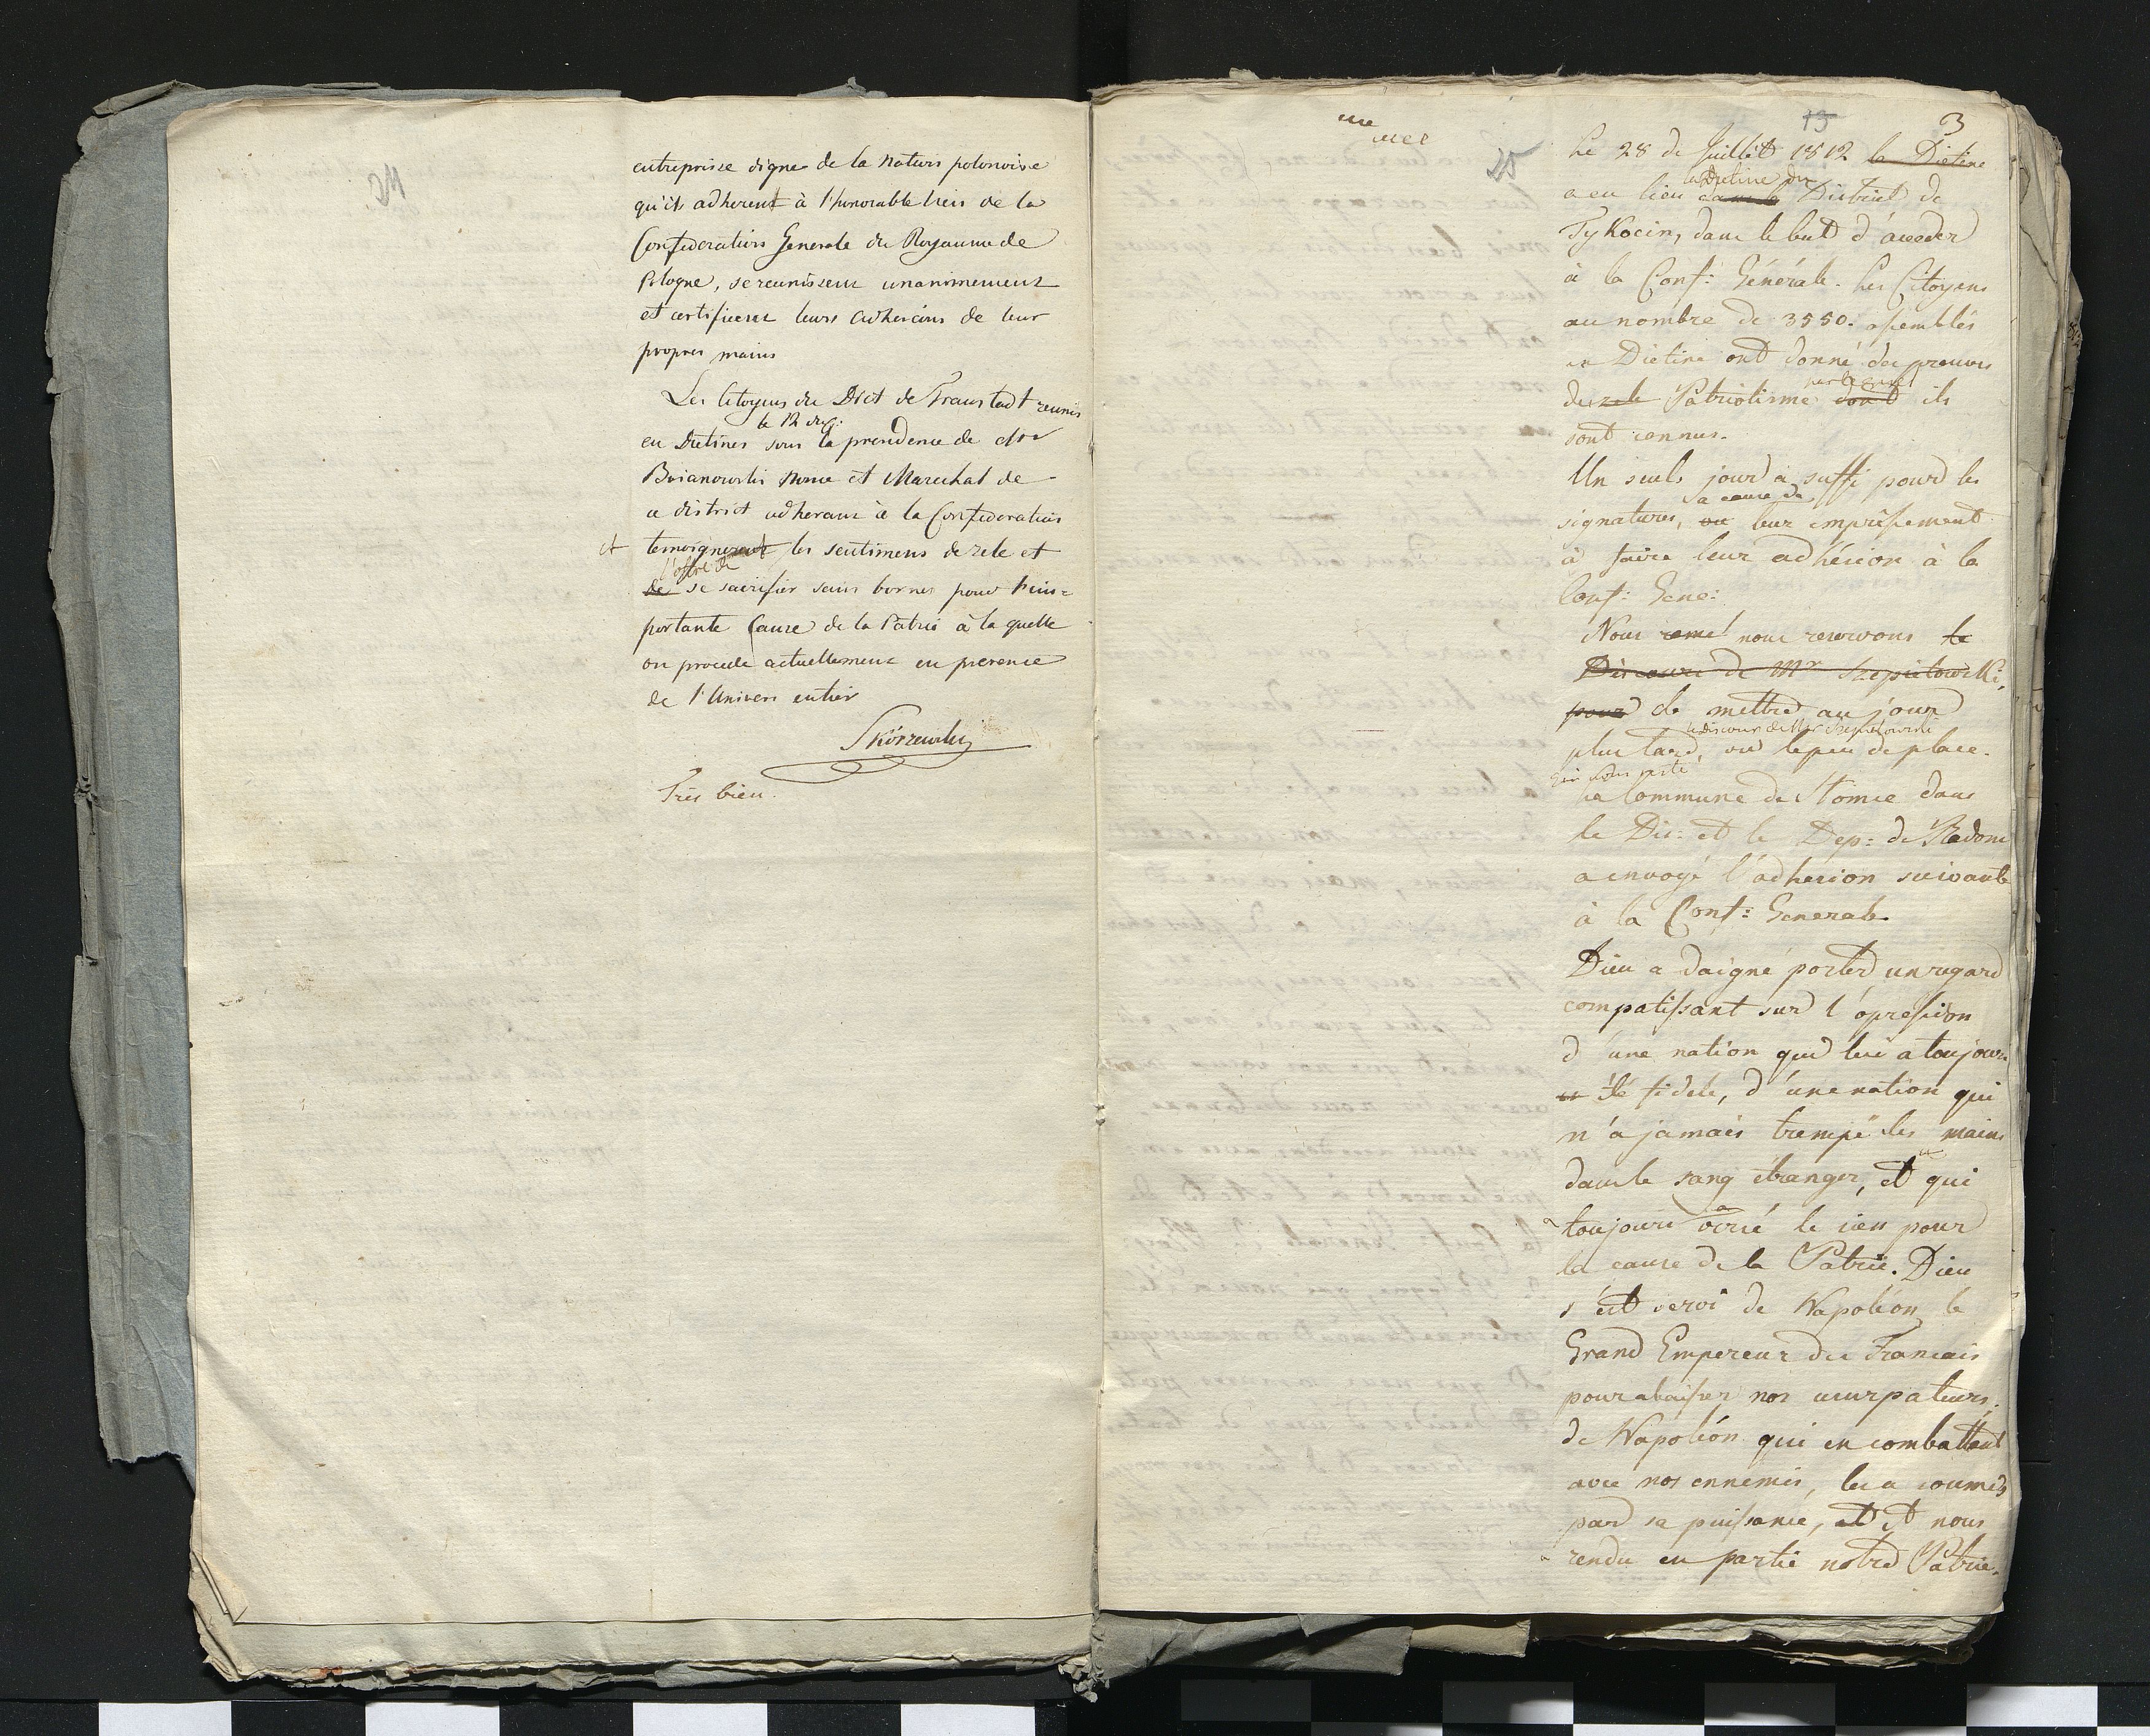 24
entreprise digne de la nation polonoise
qu'ils adherent à l'honorable lien de la
Confederation Generale du Royaume de
Pologne, se reunissent unanimement
et certifient leurs adhesions de leur
propres mains
Les Citoyens du Dict de Fraustadt reunis
le 12 du ct:
en Dietines sous la presidence de Mr
Boianowski Nonce et Marechal de
ce district adherant à la Confederation
et temoignerent les sentimens de zele et
l'offre de
de se sacrifier sans bornes pour l'im=
portante Cause de la Patrie à la quelle
on procede actuellement en presence
de l'Univers entier
Skórzewski
Très bien.
13 3
25
Le 28 de Juillet 1812 la Dietine
la Dietine du
a eu lieu dans le District de
Tykocin, dans le but d'acceder
à la Conf: Générale. Les Citoyens
au nombre de 3550. assemblés
en Dietine ont donné des preuves
par lequel
de zele Patriotisme dont ils
sont connus.
Un seul jour a suffi pour les
à cause de
signatures, vu leur empressement
à faire leur adhésion à la
Conf: Gene:
Nous nous reservons le
Discours de Mr Szepietowski,
pour de mettre au jour
le discours de Mr Szepietowski
plus tard, vu le peu de place.
qui nous reste
La Commune de Slomie dans
le Dis: et le Dep: de Radom
a envoyé l'adhesion suivante
à la Conf: Generale.
Dieu a daigné porter un regard
compatissant sur l'opression
d'une nation qui lui a toujours
été fidele, d'une nation qui
n'a jamais trempé les mains
dans le sang étranger, et qui
a toujours versé le sien pour
la cause de la Patrie. Dieu
s'est servi de Napoléon le
Grand Empereur des Francais
pour abaisser nos usurpateurs,
de Napoléon qui en combattant
avec nos ennemis, les a soumis
par sa puissance, et et nous
a rendu en partie notre Patrie.